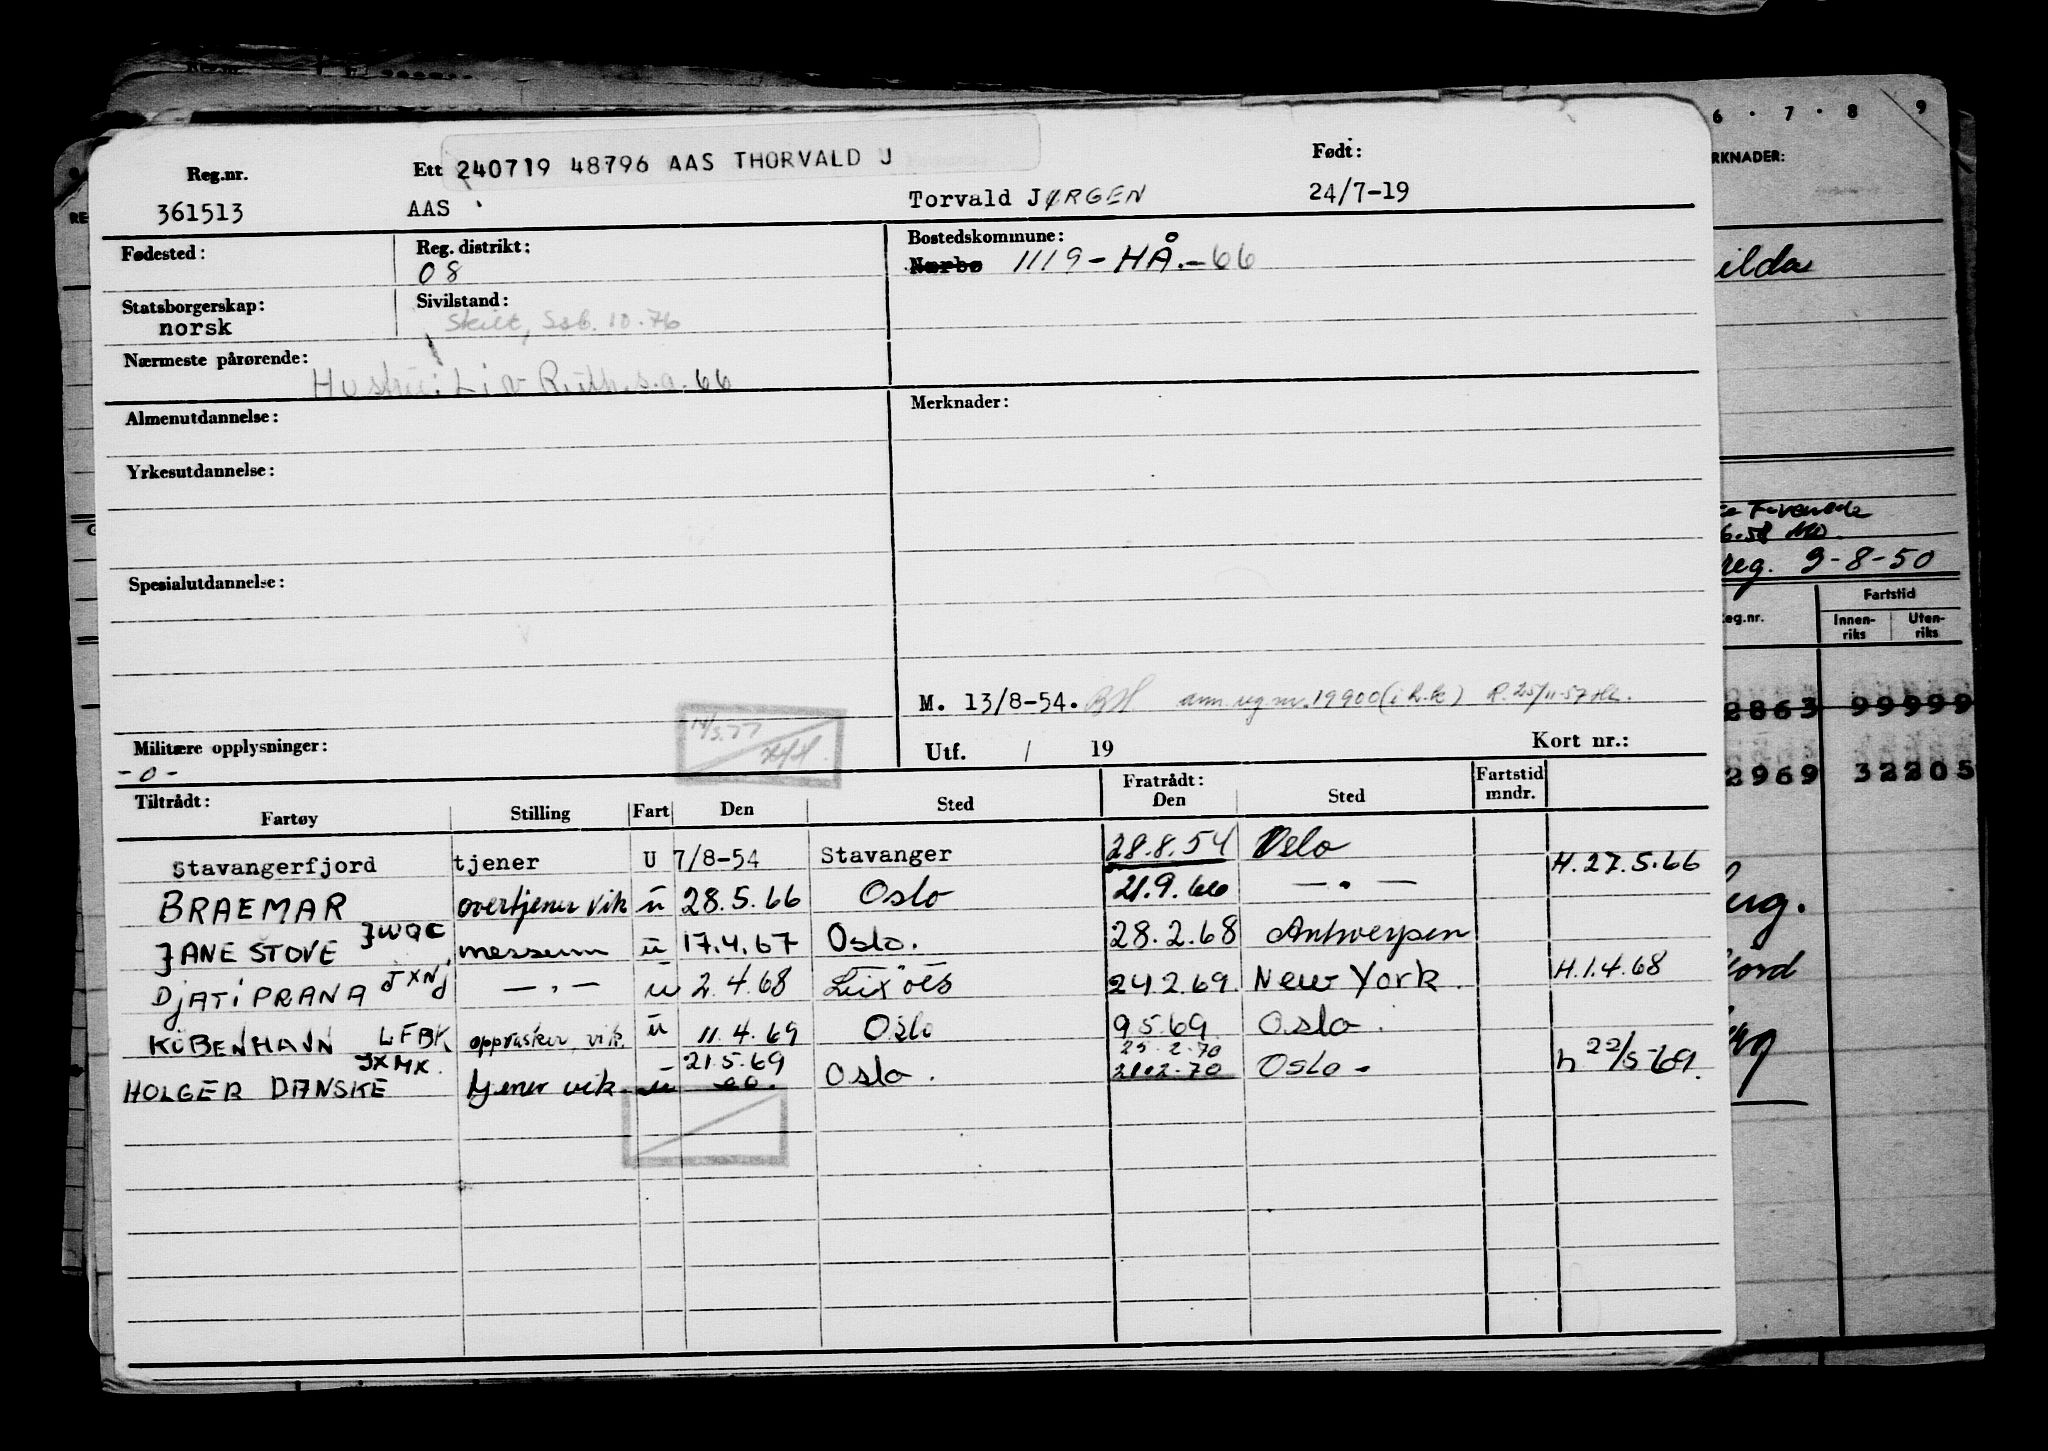 Reg.nr. Ett 240719 48796 AAS THORVALD J Født:
361513 AAS Torvald JØRGEN 24/7-19
Fødested: Reg. distrikt: 08 Bostedskommune: Nærbø 1119-HÅ.-66
Statsborgerskap: norsk Sivilstand: Skilt, Ssb. 10.76
Nærmeste pårørende: Hustru: Liv Ruth s.a. 66
Almenutdannelse: Merknader:
Yrkesutdannelse:
Spesialutdannelse:
M. 13/8-54. ann. reg. nr. 19900 (i h.k) R. 25/11-57
Militære opplysninger: -0- Utf. / 19 Kort nr.:
Tiltrådt: Fartøy Stilling Fart Den Sted Fratrådt: Den Sted Fartstid mndr.
Stavangerfjord tjener U 7/8-54 Stavanger 28.8.54 Oslo H.27.5.66
BRAEMAR overtjener vik u 28.5.66 Oslo 21.9.66 — " —
JANE STOVE JWQC messem u 17.4.67 Oslo. 28.2.68 Antwerpen
DjATiPRANA JXNJ — " — u 2.4.68 24.2.69. New York. H.1.4.68
KÖBENHAVN LFBK oppvasker vik. u 11.4.69 Oslo 9.5.69 Oslo.
HOLGER DANSKE JXMK. tjener vik. u 21.5.69 Oslo. 21.2.70 Oslo. h 22/5-69.
6 · 7 · 8 9
RKNADER:
ilda
6.58
reg. 9-8-50
eg.nr. Fartstid
Innen-riks Uten-riks
2863 99999
2969 32205